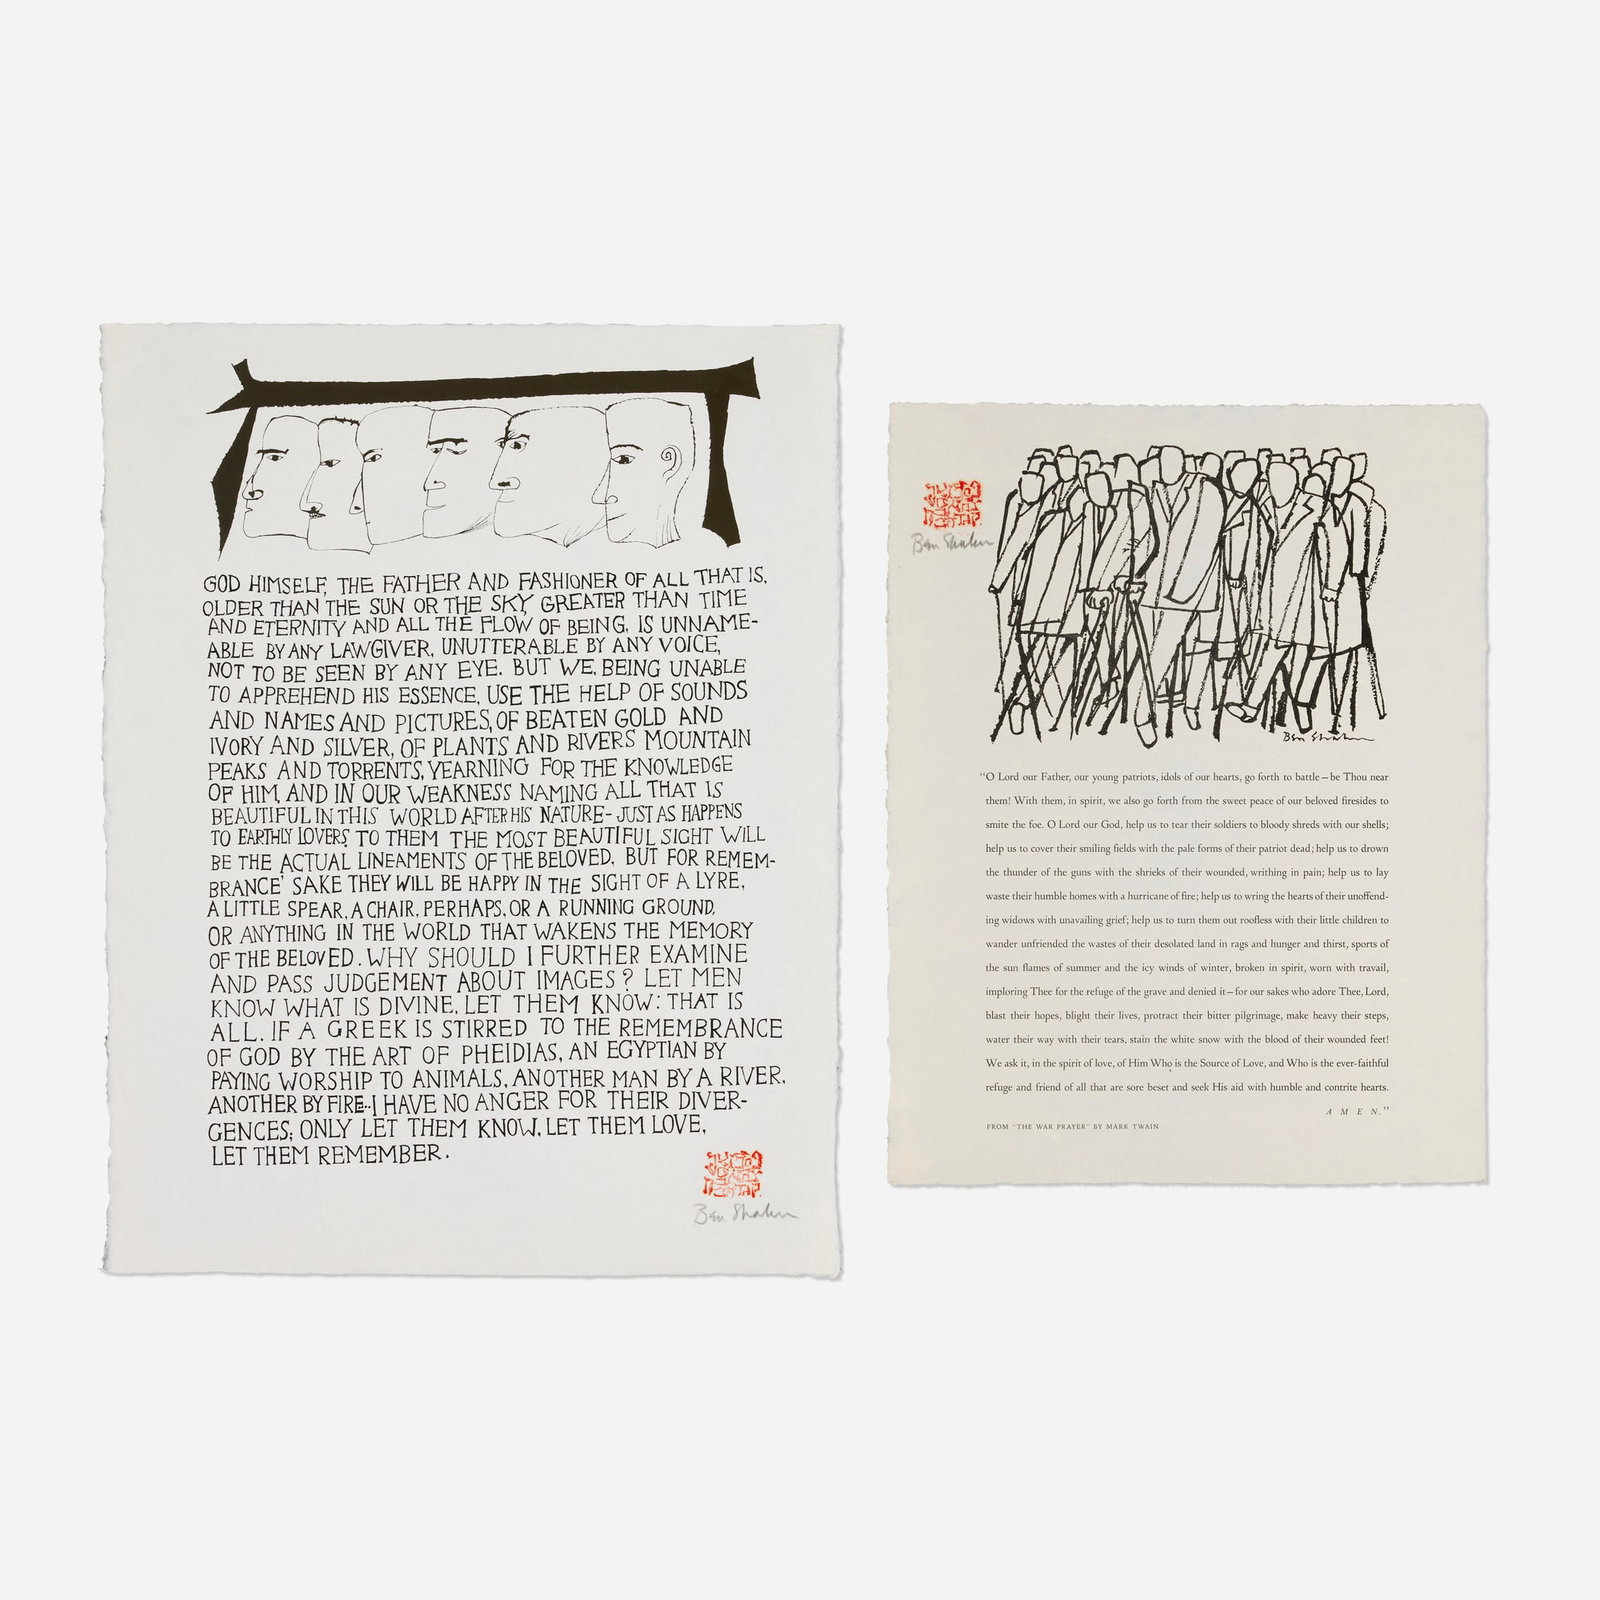 GOD HIMSELF, THE FATHER AND FASHIONER OF ALL THAT IS,
OLDER THAN THE SUN OR THE SKY, GREATER THAN TIME
AND ETERNITY AND ALL THE FLOW OF BEING, IS UNNAME-
ABLE BY ANY LAWGIVER, UNUTTERABLE BY ANY VOICE,
NOT TO BE SEEN BY ANY EYE. BUT WE, BEING UNABLE
TO APPREHEND HIS ESSENCE, USE THE HELP OF SOUNDS
AND NAMES AND PICTURES, OF BEATEN GOLD AND
IVORY AND SILVER, OF PLANTS AND RIVERS MOUNTAIN
PEAKS AND TORRENTS, YEARNING FOR THE KNOWLEDGE
OF HIM, AND IN OUR WEAKNESS NAMING ALL THAT IS
BEAUTIFUL IN THIS WORLD AFTER HIS NATURE- JUST AS HAPPENS
TO EARTHLY LOVERS, TO THEM THE MOST BEAUTIFUL SIGHT WILL
BE THE ACTUAL LINEAMENTS OF THE BELOVED, BUT FOR REMEM-
BRANCE' SAKE THEY WILL BE HAPPY IN THE SIGHT OF A LYRE,
A LITTLE SPEAR, A CHAIR, PERHAPS, OR A RUNNING GROUND,
OR ANYTHING IN THE WORLD THAT WAKENS THE MEMORY
OF THE BELOVED. WHY SHOULD I FURTHER EXAMINE
AND PASS JUDGEMENT ABOUT IMAGES? LET MEN
KNOW WHAT IS DIVINE, LET THEM KNOW: THAT IS
ALL. IF A GREEK IS STIRRED TO THE REMEMBRANCE
OF GOD BY THE ART OF PHEIDIAS, AN EGYPTIAN BY
PAYING WORSHIP TO ANIMALS, ANOTHER MAN BY A RIVER,
ANOTHER BY FIRE--I HAVE NO ANGER FOR THEIR DIVER-
GENCES; ONLY LET THEM KNOW, LET THEM LOVE,
LET THEM REMEMBER.
Ben Shahn
Ben Shahn
Ben Shahn
"O Lord our Father, our young patriots, idols of our hearts, go forth to battle—be Thou near
them! With them, in spirit, we also go forth from the sweet peace of our beloved firesides to
smite the foe. O Lord our God, help us to tear their soldiers to bloody shreds with our shells;
help us to cover their smiling fields with the pale forms of their patriot dead; help us to drown
the thunder of the guns with the shrieks of their wounded, writhing in pain; help us to lay
waste their humble homes with a hurricane of fire; help us to wring the hearts of their unoffend-
ing widows with unavailing grief; help us to turn them out roofless with their little children to
wander unfriended the wastes of their desolated land in rags and hunger and thirst, sports of
the sun flames of summer and the icy winds of winter, broken in spirit, worn with travail,
imploring Thee for the refuge of the grave and denied it—for our sakes who adore Thee, Lord,
blast their hopes, blight their lives, protract their bitter pilgrimage, make heavy their steps,
water their way with their tears, stain the white snow with the blood of their wounded feet!
We ask it, in the spirit of love, of Him Who is the Source of Love, and Who is the ever-faithful
refuge and friend of all that are sore beset and seek His aid with humble and contrite hearts.
AMEN."
FROM "THE WAR PRAYER" BY MARK TWAIN